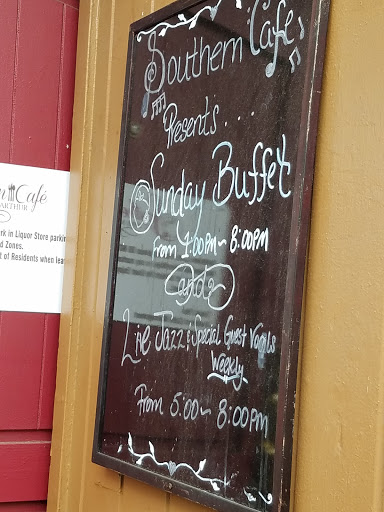 Southern Cafe
Presents....
Sunday Buffet
From 1:00pm - 8:00pm
Live Jazz & Special Guest Vocals
Weekly
From 5:00 - 8:00pm
Café
ARTHUR
rk in Liquor Store parkin
d Zones.
t of Residents when lea